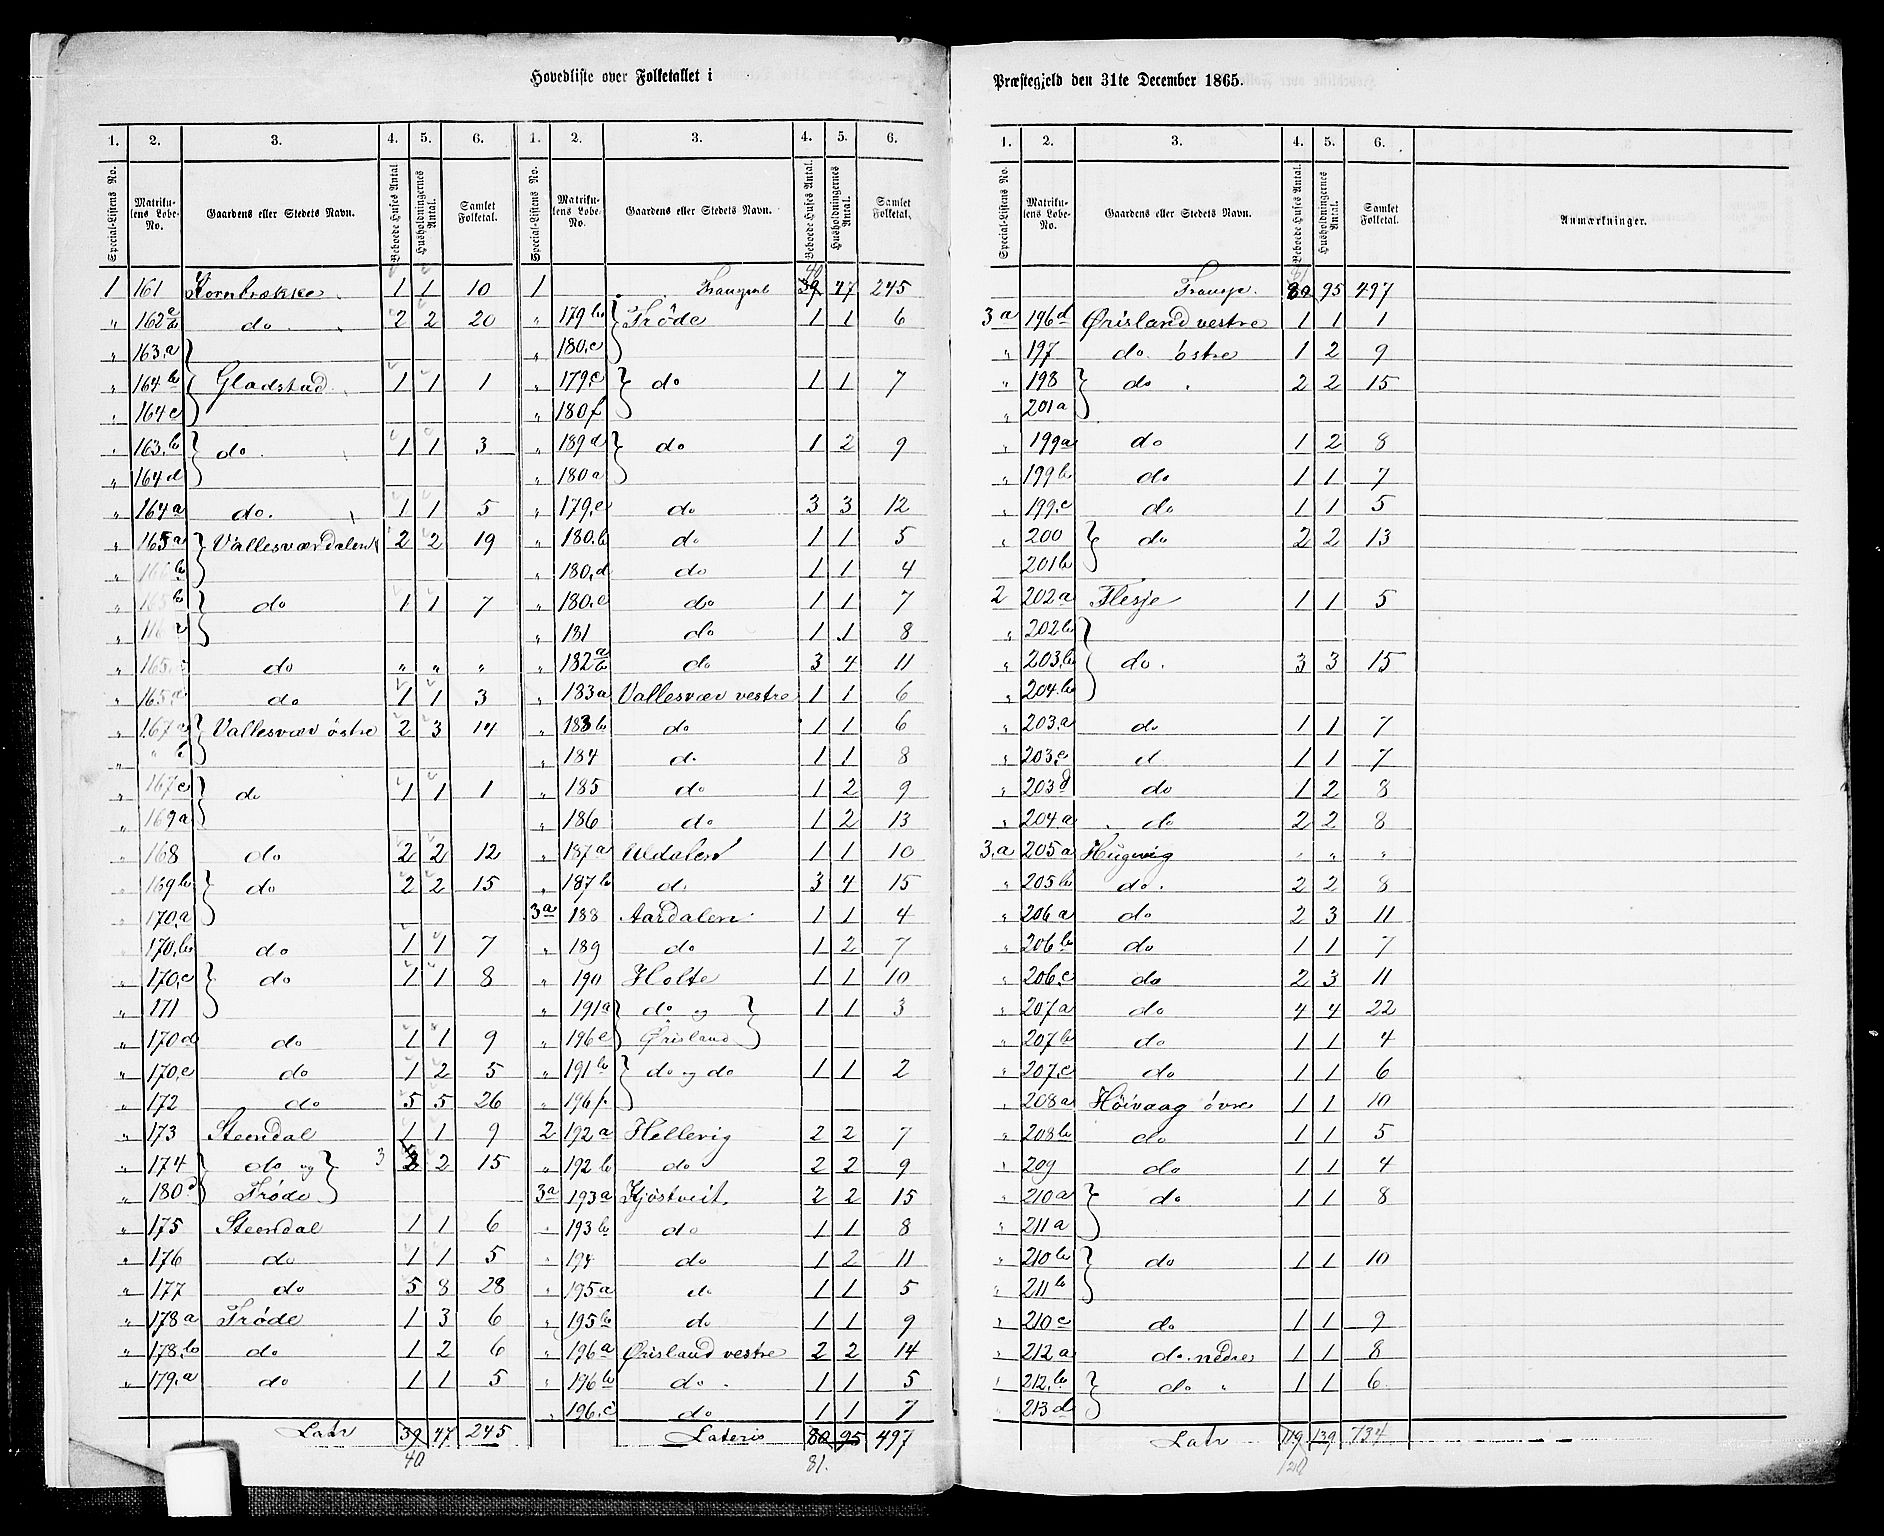 Hovedliste over Folketallet i
1. 2. 3. 4. 5. 6. 1. 2. 3. 4. 5. 6.
Special-Listens No. Matrikulens Løbe-No. Gaardens eller Stedets Navn. Beboede Huses Antal Husholdningernes Antal. Samlet Folketal. Special-Listens No. Matrikulens Løbe-No. Gaardens eller Stedets Navn. Beboede Huses Antal. Husholdningernes Antal. Samlet Folketal.
1 161 Kornbrække 1 1 10
" 162 do. 2 2 20
" 163.a }
" 164b } Gladstad 1 1 1
" 164c }
" 163.b } do 1 1 3
" 164d }
" 164a do. 1 1 5
" 165a } Vallesværdalen 2 2 19
" 166b }
" 165b } do 1 1 7
" }
" 165 do " " "
" 165 do 1 1 3
" 167a } Vallesvær østre 2 3 14
" " b }
" 167c } do 1 1 1
" 169a }
168 do 2 2 12
169b } do 2 2 15
170.a }
170.b do 1 1 7
" 170.c } do 1 1 8
" 171 }
" 170d do 1 1 9
" 170.e do 1 2 5
" 172 do 5 5 26
" 173 Steendal 1 1 9
" 174 } do og } 3 2 2 15
" 180 } Trøde }
" 175 Steendal 1 1 6
" 176 do 1 1 5
" 177 do 5 8 28
" 178a Trøde 1 3 6
" 178.b do 1 2 6
" 179.a do 1 1 5
Latr 39 47 245
40
40
1 Transport 39 47 245
" 179b } Trøde 1 1 6
" 180.c }
" 179.c } do 1 1 7
" 180f }
" 189d } do 1 2 9
" 180a }
" 179.e do 3 3 12
" 180.b do 1 1 5
" 180.d do 1 1 4
" 180.e do 1 1 7
" 181 do 1 1 8
" 182 do 3 4 11
" 183a Vallesvær vestre 1 1 6
" 183b do 1 1 6
" 184 do 1 1 8
" 185 do 1 2 9
" 186 do 1 2 13
" 187a Uldalen 1 1 10
" 187b do 3 4 15
3a 188 Aardalen 1 1 4
" 189 do 1 2 7
" 190 Holte 1 1 10
" 191a } do og } 1 1 3
" 196e } Ørisland }
" 191b } do og do 1 1 2
" 196f }
2 192a Hellevig 2 2 7
" 192b do 2 2 9
3a 193a Kjöstveit 2 2 15
" 193b do 1 1 8
" 194 do 1 2 11
" 195a do 1 1 5
" 195b do 1 1 9
" 196a Ørisland vestre 2 2 14
" 196b do 1 1 5
" 196.c do 1 1 7
Lateris 80 95 497
81.
Præstegjeld den 31te December 1865.
1. 2. 3. 4. 5. 6.
Special-Listens No. Matrikulens Løbe-No. Gaardens eller Stedets Navn. Beboede Huses Antal. Husholdningernes Antal. Samlet Folketal. Anmærkninger.
81
Transp. 80 95 497
3a 196d Ørisland vestre 1 1 1
" 197 do. østre 1 2 9
" 198 } do " 2 2 15
" 201a }
" 199a do 1 2 8
" 199b do 1 1 7
" 199.c do 1 1 5
" 200 } do 2 2 13
201b }
2 202a Flesje 1 1 5
" 202b }
" 203.b } do. 3 3 15
" 204.b }
" 203.a do 1 1 7
" 203.c d 1 1 7
" 203d do 1 2 8
" 204.a do 2 2 8
3.a 205a Hugevig " " "
" 205b do. 2 2 8
" 206a do 2 3 11
" 206b do 1 1 7
" 206.c do 2 3 11
" 207a do 4 4 22
" 207b do 1 1 4
" 207.c do 1 1 6
" 208a Höivaag övre 1 1 10
" 208b do 1 1 5
" 209 do 1 1 4
" 210a } do 1 1 8
" 211a }
" 210b } do 1 1 10
" 211b }
" 210c do 1 1 9
" 212a do nedre 1 1 8
" 212.b } do " 1 1 6
" 213d }
Latr 119 139 734
120